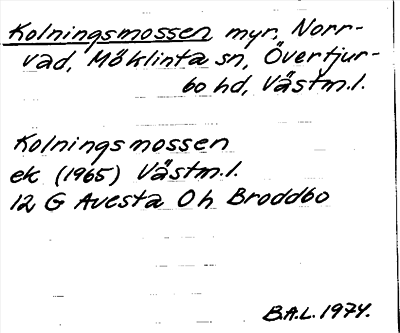 Kolningsmossen myr, Norr-
vad, Möklinta sn, Övertjur-
bo hd, Västm.l.
Kolningsmossen
ek (1965) Västm.l.
12 G Avesta 0 h Broddbo
B.A.L. 1974.